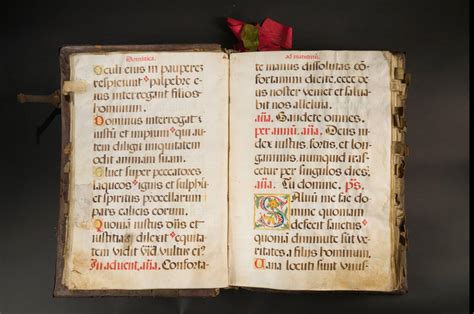 Dominica.
Oculi eius in pauperē
respiciunt palpebre e-
ius interrogant filios
hominum.
Dominus interrogat i-
ustū et impium qui au-
tem diligit iniquitatem
odit animam suam.
Pluet super peccatores
laqueos ignis et sulphu
et spiritus procellarum
pars calicis eorum.
Quoniā iustus dn̄s et
iustitias dilexit equita-
tem vidit eius
In aduent. aña. Conforta-
te manus dissolutas cō
fortamini dicite. ecce de
us noster veniet et salua
bit nos alleluia.
aña. Gaudete omnes.
per annū. aña. Deus iu
dex iustus, fortis, et lon-
gamimis nunquid iras-
cetur per singulos dies;
aña. Tu domine. ps.
Saluū me fac do
mine quoniam
defecit sanctus
quoniā diminute sūt ve-
ritates a filiis hominum.
Uana locuti sunt unus-